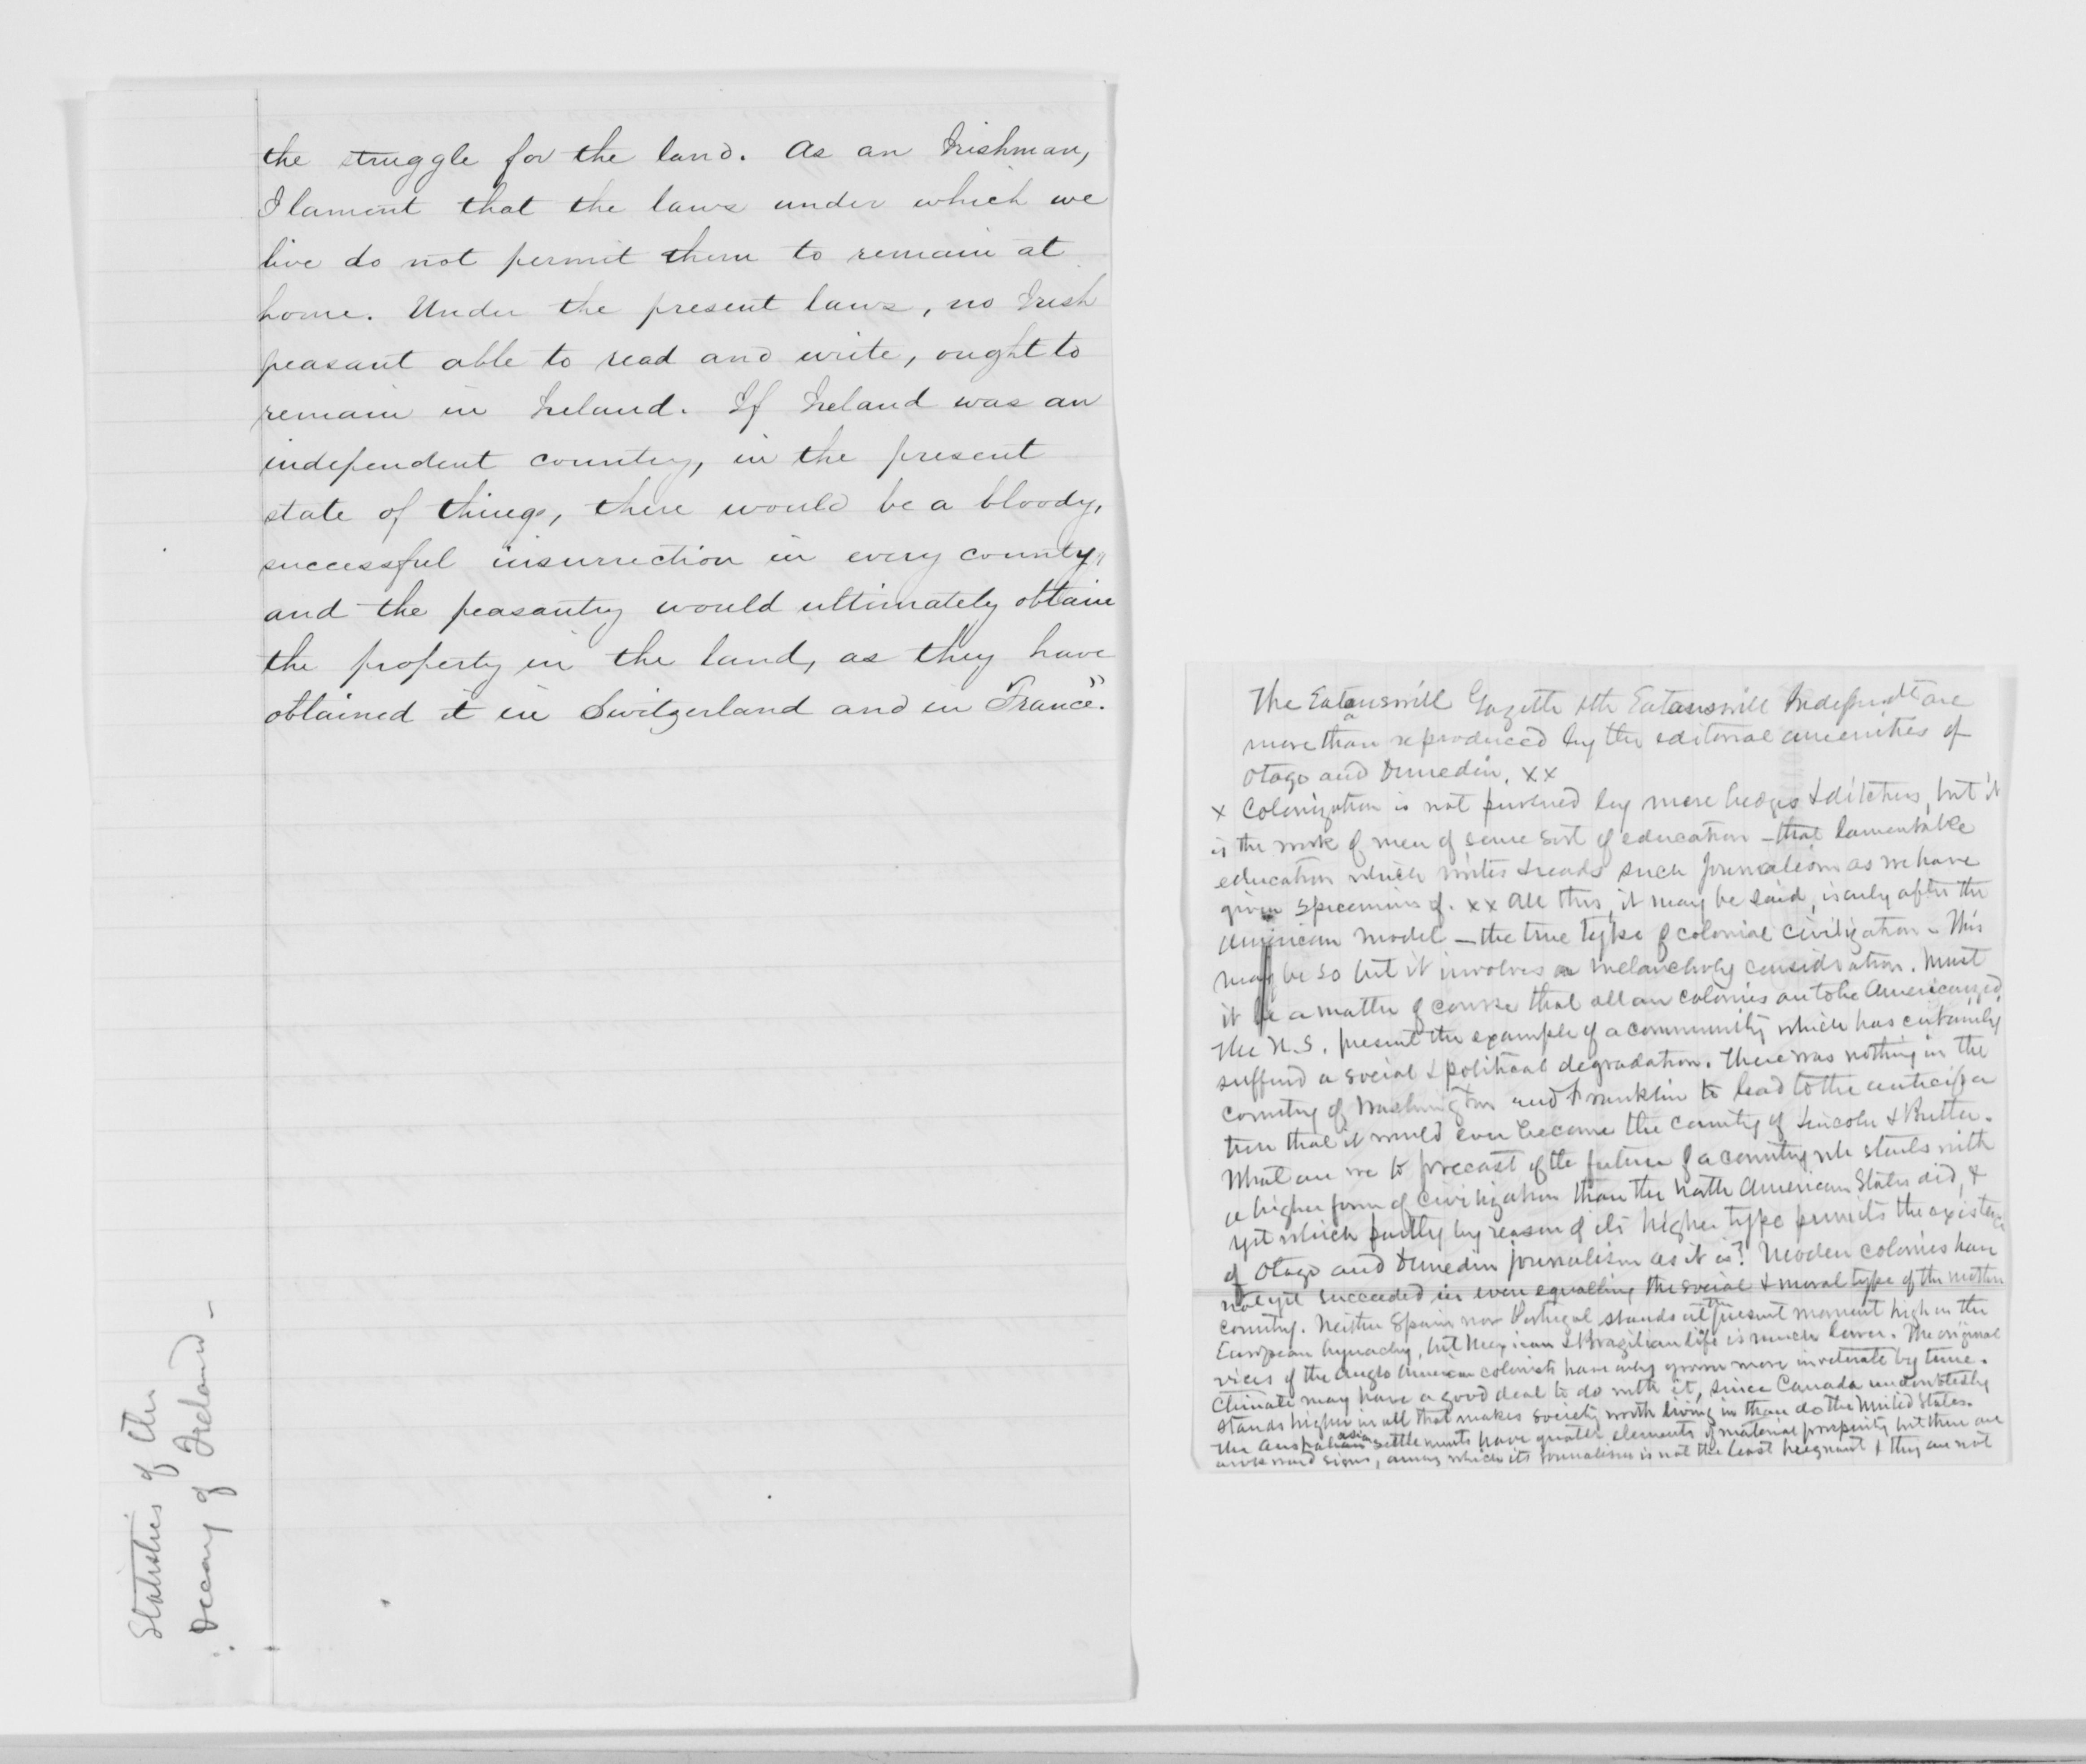 the struggle for the land. As an Irishman,
I lament that the laws under which we
live do not permit them to remain at
home. Under the present laws, no Irish
peasant able to read and write, ought to
remain in Ireland. If Ireland was an
independent country, in the present
state of things, there would be a bloody,
successful insurrection in every county,
and the peasantry would ultimately obtain
the property in the land, as they have
obtained it in Switzerland and in France."
Statistics of the
Decay of Ireland -
The Eatanswill Gazette & the Eatanswill Independt are
more than reproduced by the editorial amenities of
Otago and Dunedin. xx
x Colonization is not pursued by mere hedgers & ditchers, but it
is the work of men of some sort of education - that lamentable
education which writes & reads such journalism as we have
given specimens of. xx All this, it may be said, is only after the
American model - the true type of colonial civilization - This
may be so but it involves a melancholy consideration. Must
it be a matter of course that all our colonies are to be Americanized
The U.S. present the example of a community which has certainly
suffered a social & political degradation. There was nothing in the
country of Washington and Franklin to lead to the anticipa
tion that it would ever become the country of Lincoln & Butler.
What are we to forecast of the future of a country wh starts with
a higher form of civilization than the North American States did, &
yet which partly by reason of its higher type permits the existence
of Otago and Dunedin journalism as it is? Modern colonies have
not yet succeeded in even equalling the social & moral type of the mother
country. Neither Spain nor Portugal stands at the present moment high in the
European hierarchy, but Mexican & Brazilian life is much lower. The original
vices of the Anglo American colonists have only grown more inveterate by time.
Climate may have a good deal to do with it, since Canada undoubtedly
stands higher in all that makes society worth living in than do the United States.
The Australasian settlements have greater elements of material prosperity but there are
awkward signs, among which its journalism is not the least pregnant & they are not